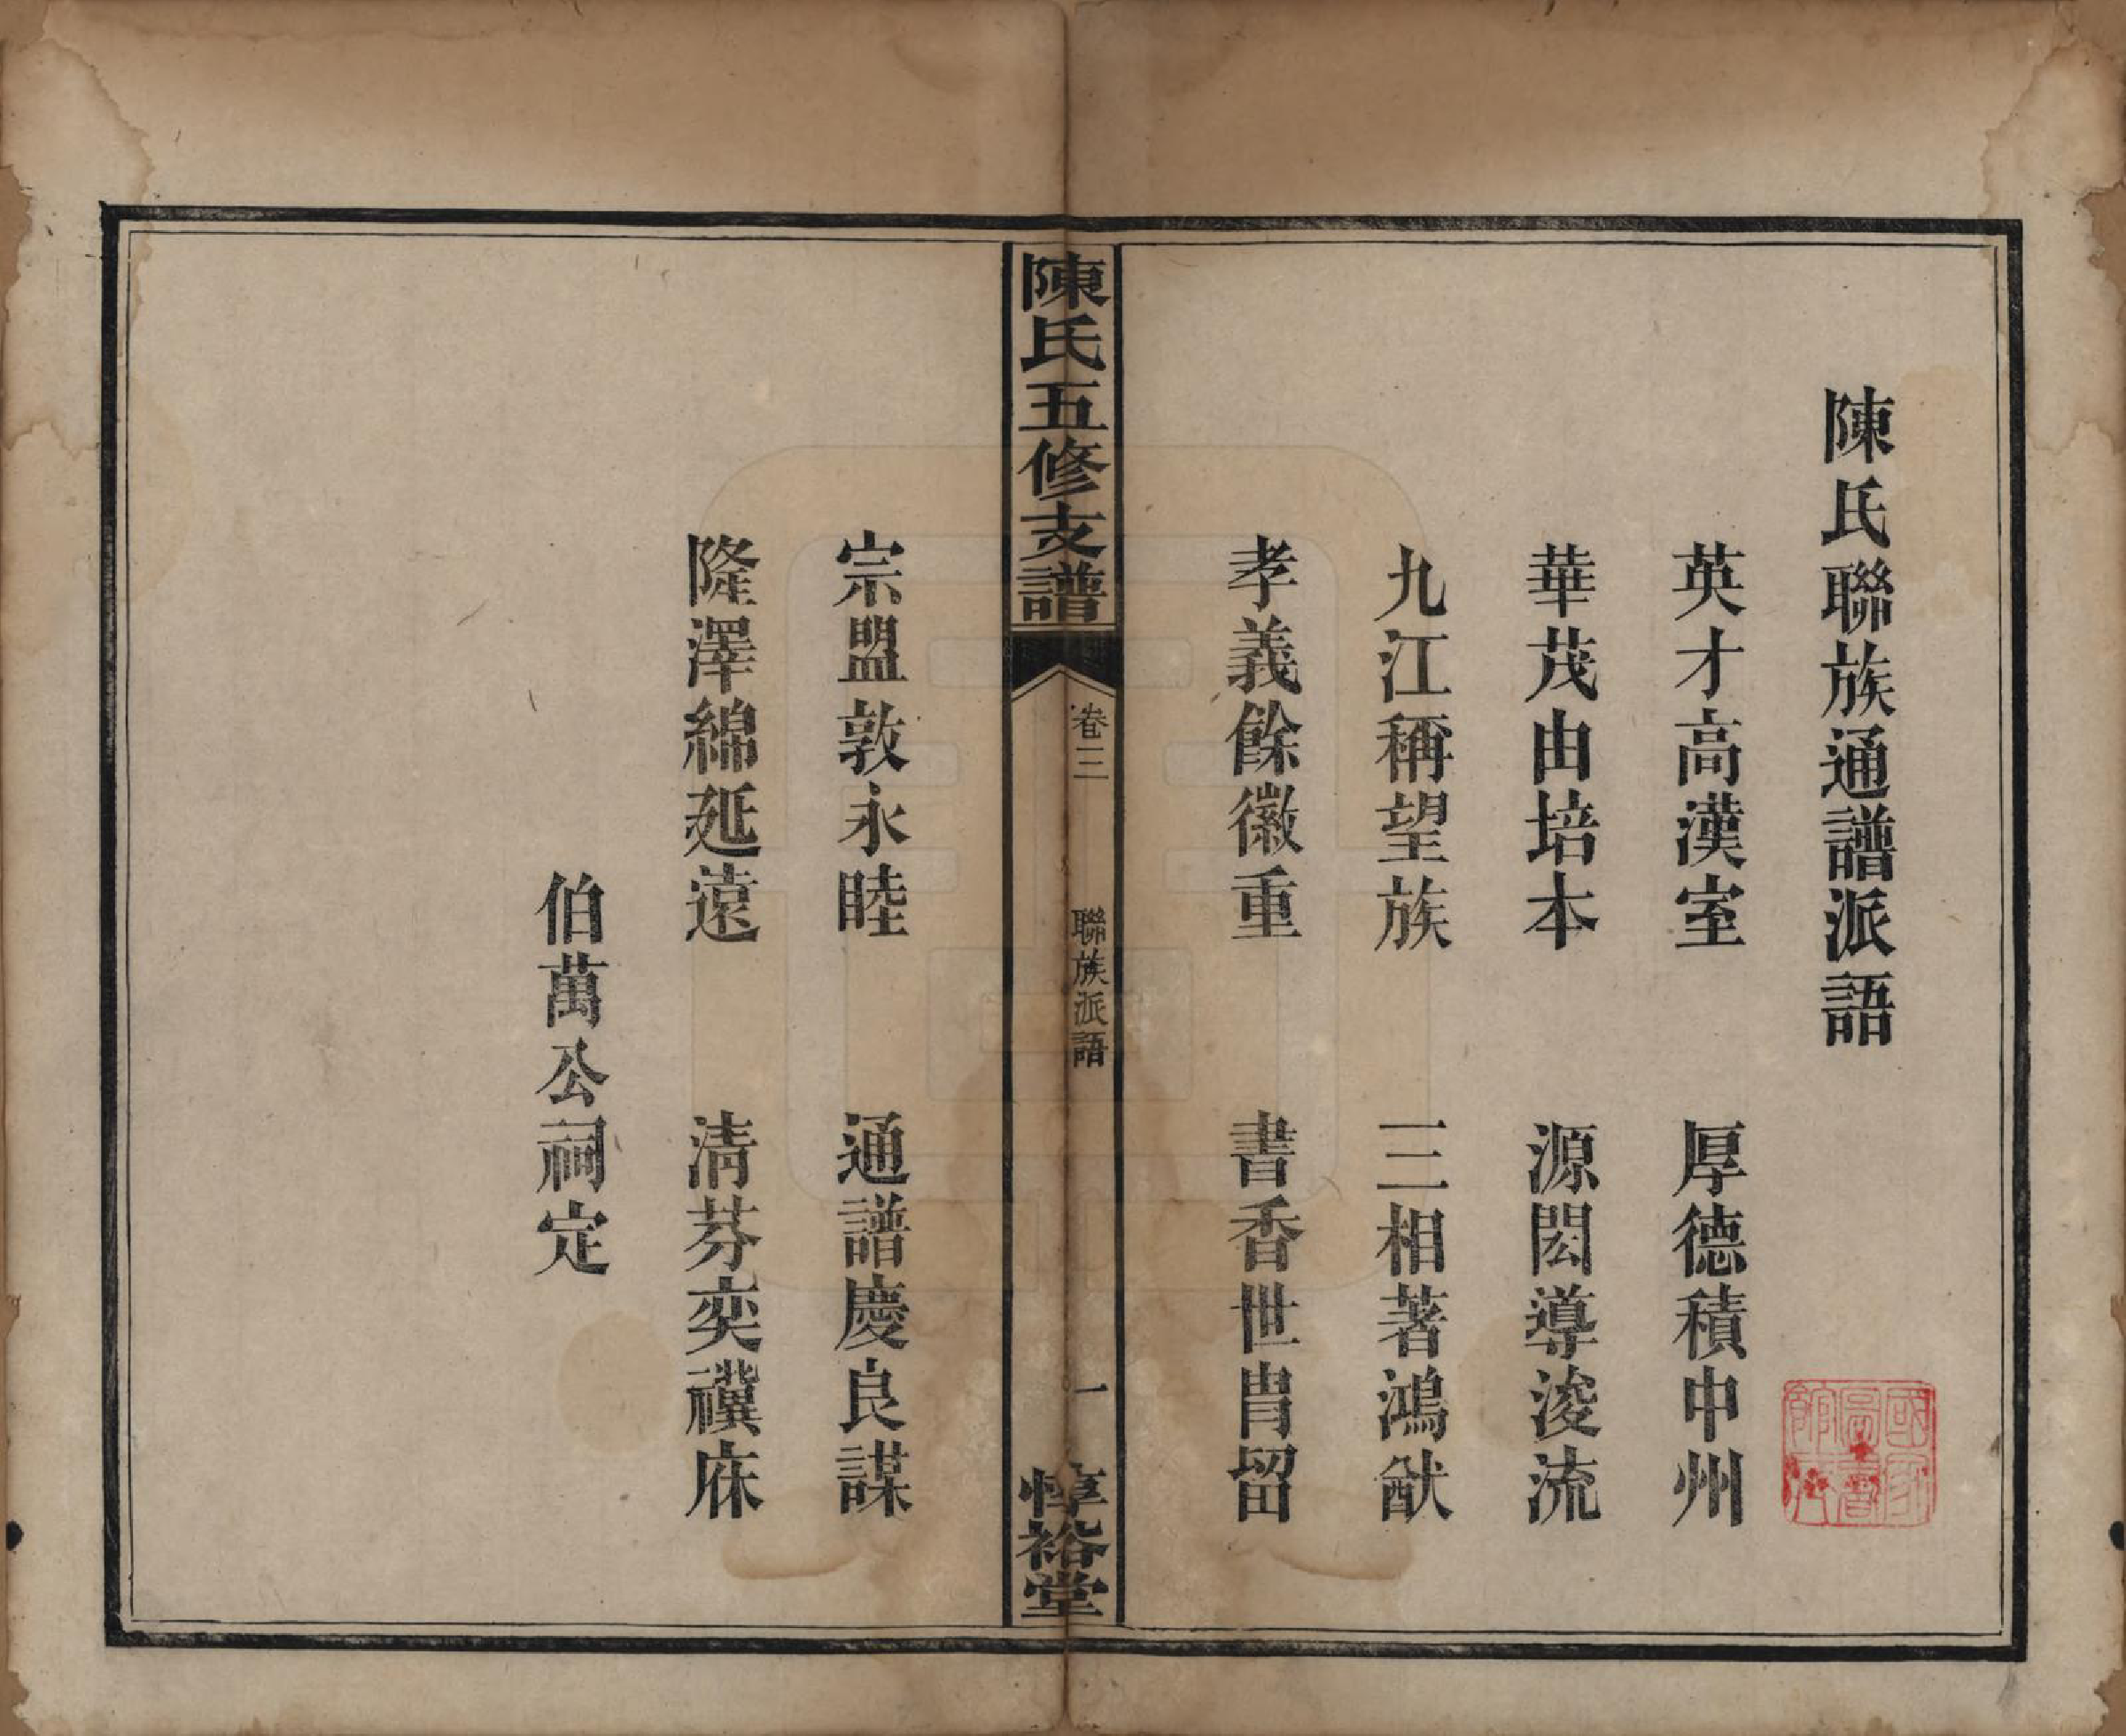 陳氏聯族通譜派語
英才高漢室　厚德積中州
華茂由培本　源閎導浚流
九江稱望族　三相著鴻猷
孝義餘徽重　書香世胄留
陳氏五修支譜　卷三　聯族派語　一　惇裕堂
宗盟敦永睦　通譜慶良謀
隆澤綿延遠　清芬奕禩庥
伯萬公祠定